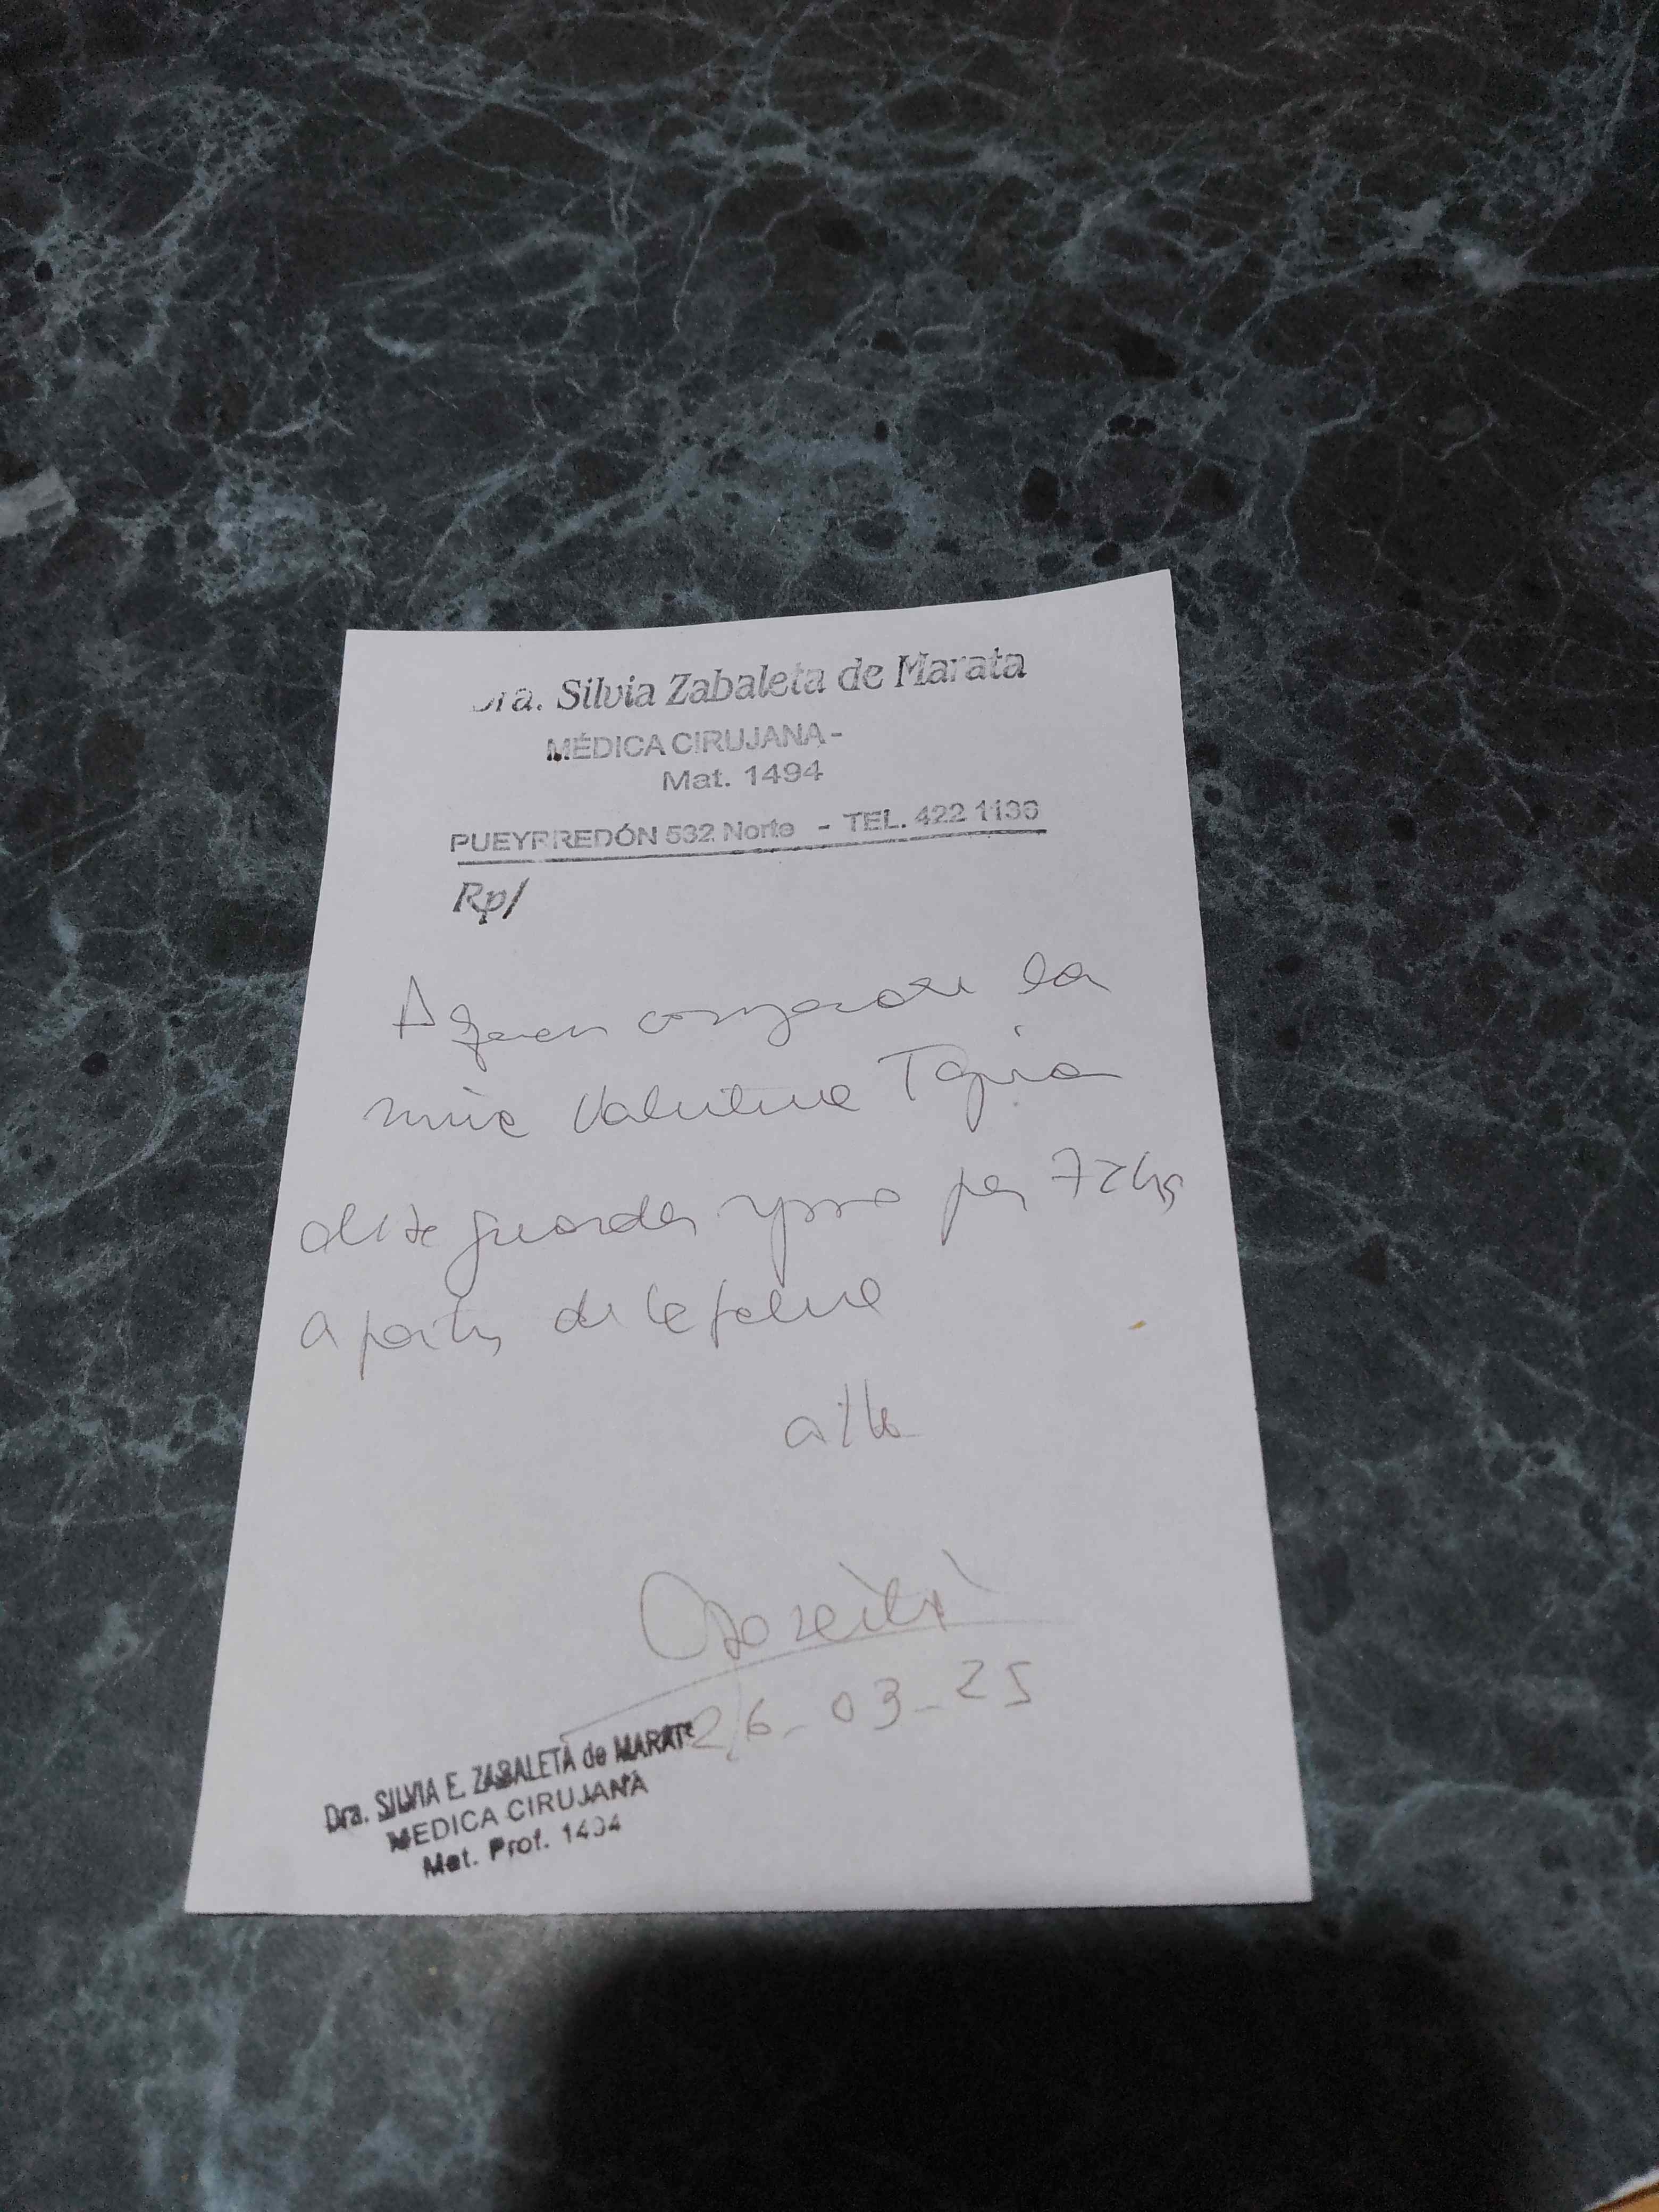 Dra. Silvia Zabaleta de Marata
MÉDICA CIRUJANA -
Mat. 1494
PUEYRREDÓN 532 Norte - TEL. 422 1136
Rp/
A quien corresponda la
niña Valentina Tapia
debe guardar reposo por 72 hs
a partir de la fecha
atte
26-03-25
Dra. SILVIA E. ZABALETA de MARATA
MEDICA CIRUJANA
Mat. Prof. 1494